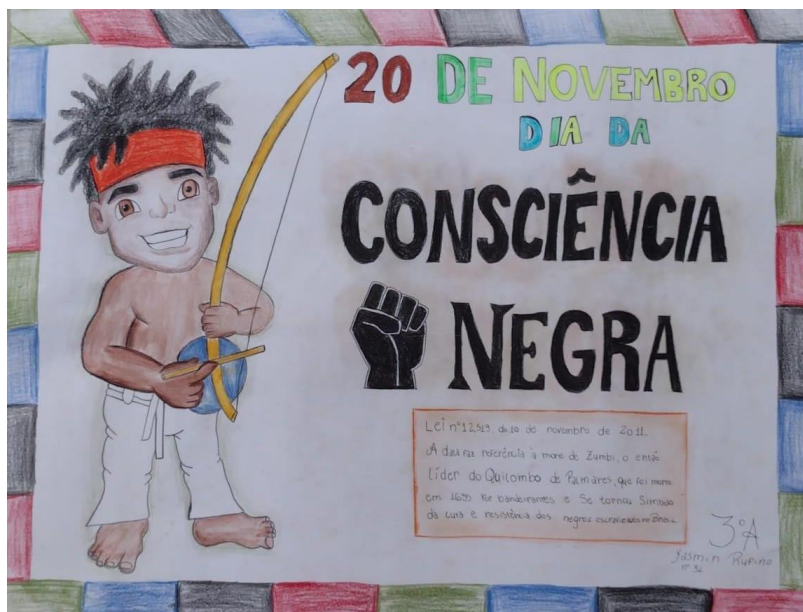 20 DE NOVEMBRO
DIA DA
CONSCIÊNCIA
NEGRA
Lei nº 12.519, de 10 de novembro de 2011.
A data faz referência à morte de Zumbi, o então
líder do Quilombo de Palmares, que foi morto
em 1695 por bandeirantes e se tornou símbolo
da luta e resistência dos negros escravizados no Brasil.
3ºA
Yasmin Rufino
nº 36